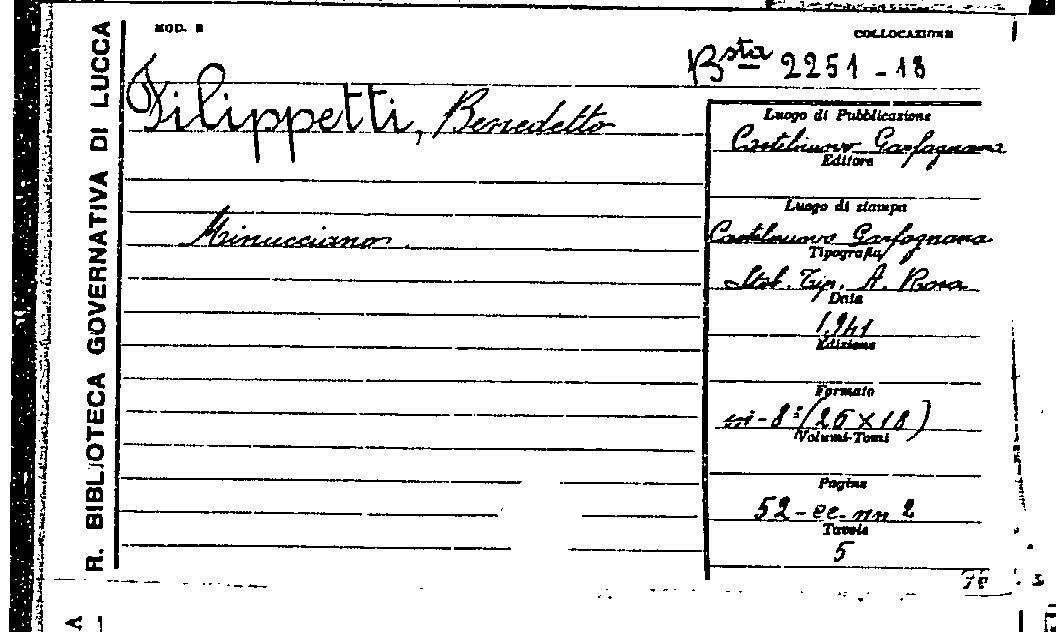 R. BIBLIOTECA GOVERNATIVA DI LUCCA
MOD. B
COLLOCAZIONE
Bsta 2251-13
Filippetti, Benedetto
Minucciano.
Luogo di Pubblicazione
Castelnuovo Garfagnana
Editore
Luogo di stampa
Castelnuovo Garfagnana
Tipografia
Stab. Tip. A. Rosa
Data
1941
Edizione
Formato
in-8° (26 x 18)
Volumi-Tomi
Pagine
52-cc-nn 2
Tavole
5